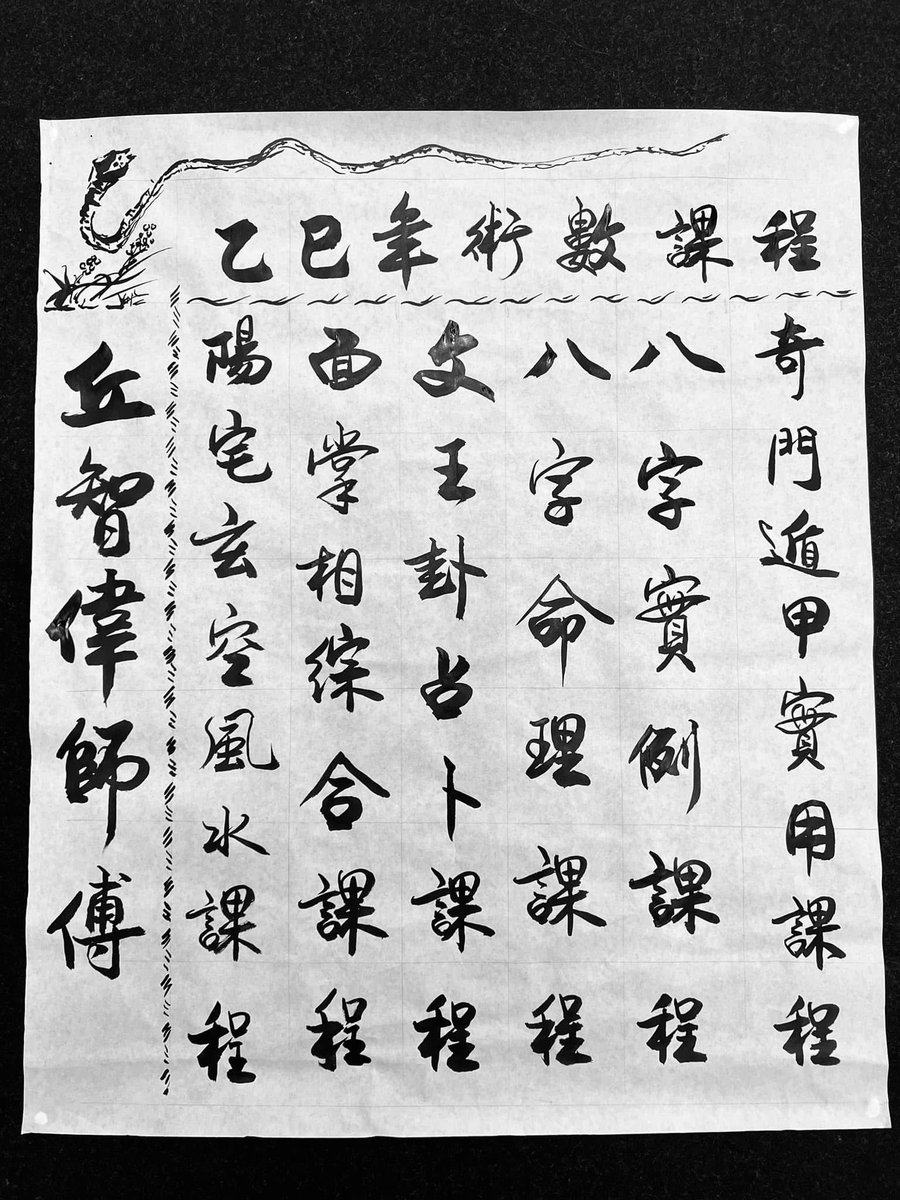 乙巳年術數課程
奇門遁甲實用課程
八字實例課程
八字命理課程
文王卦占卜課程
面掌相綜合課程
陽宅玄空風水課程
丘智偉師傅